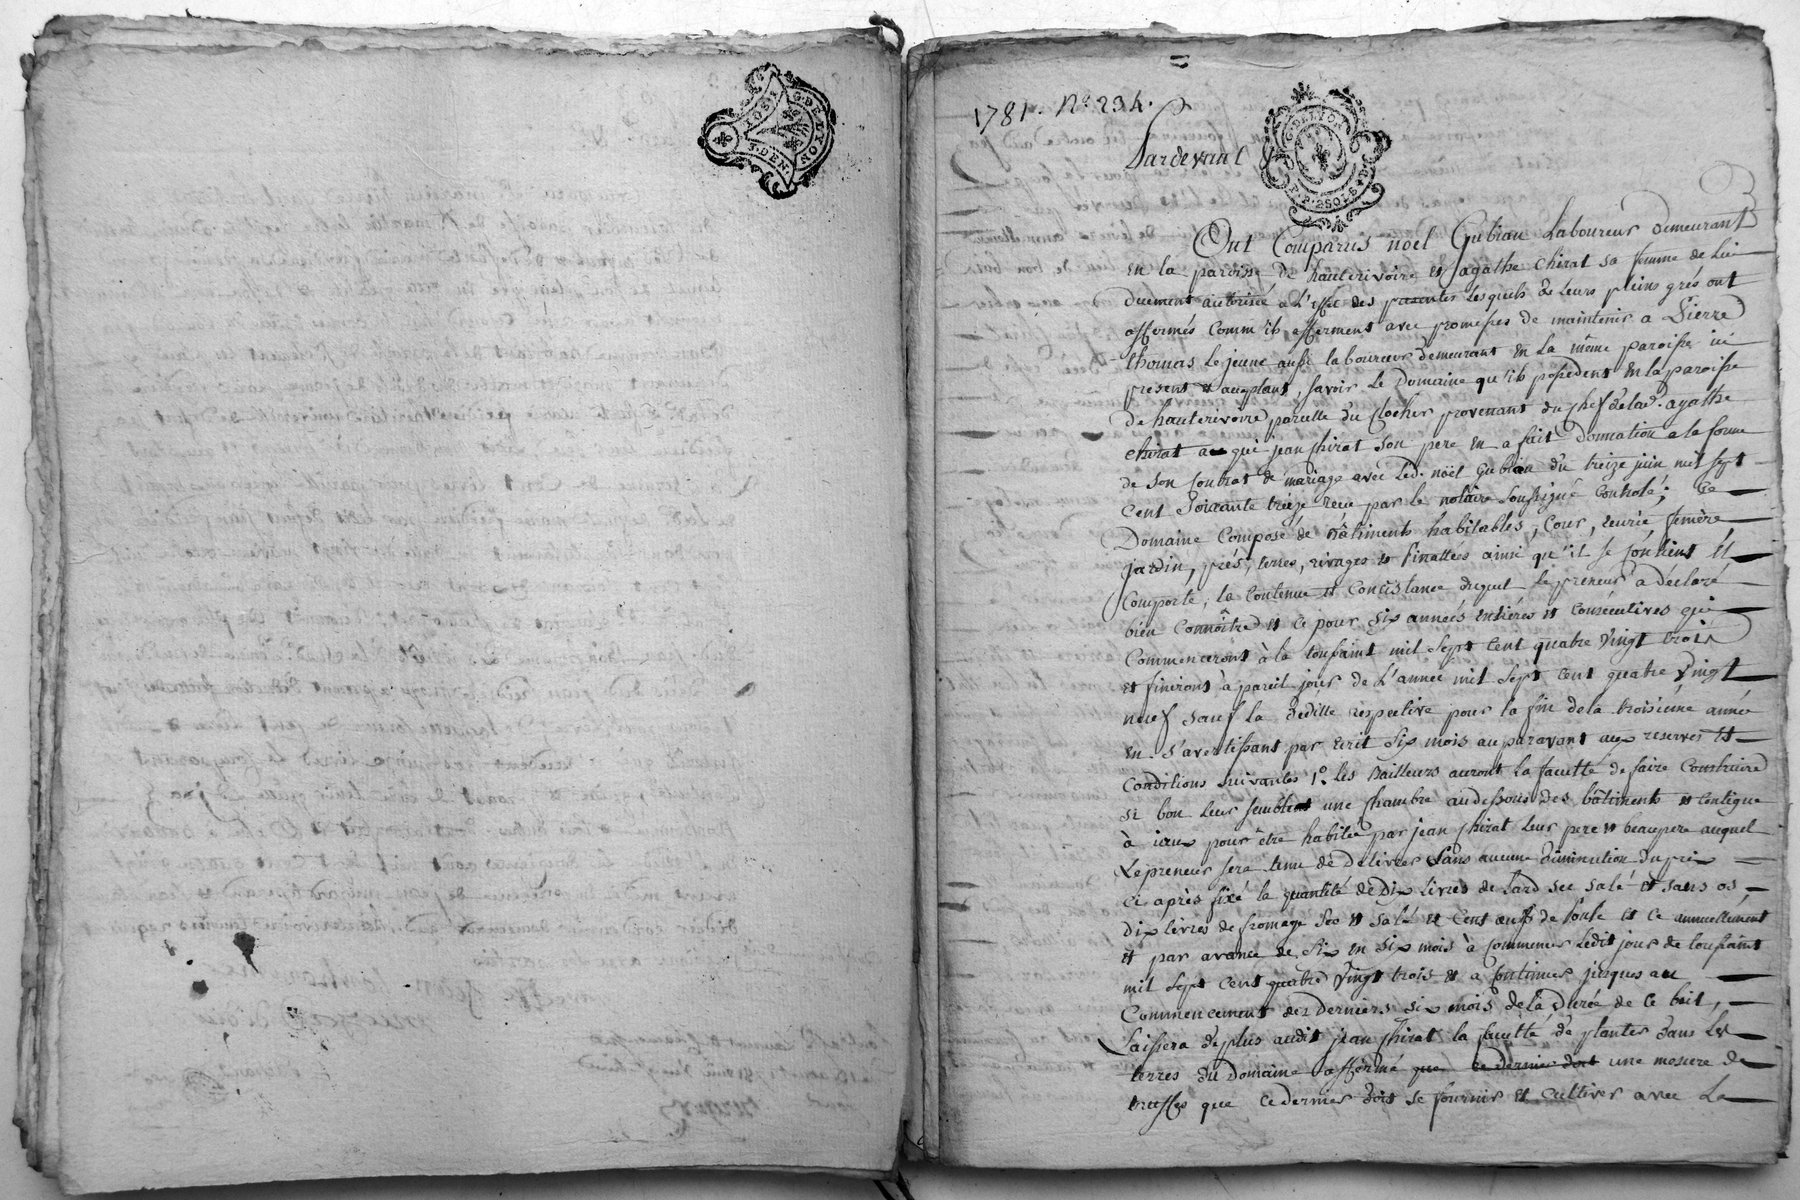 G. DE LYON
1781. N.º 234.
Pardevant
G. DE LYON
P. P. 2 SOLS
Ont Comparus noël Gubian Laboureur demeurant
en la paroisse de hauterivoire et agathe chirat sa femme de lui
duement autorisée a L'effet des presentes Lesquels de leurs pleins grés ont
affermés comm'ils afferment avec promesses de maintenir a Pierre
thomas Lejeune aussi laboureur demeurant en La même paroisse ici
present et acceptant, savoir Le Domaine qu'ils possedent en la paroisse
de hauterivoire parcelle du clocher provenant du chef de lad. agathe
chirat a qui jean chirat son pere en a fait Donnation a la forme
de son contrat de mariage avec led. noël Gubian du treize juin mil sept
cent soixante treize recu par le notaire soussigné controlé; ce
Domaine Composé de Bâtiments habitables, cour,
jardin, prés, terres, rivages et ainsi qu'il se contient Et
Comporte, la Contenue et Concistance duquel le preneur a déclaré
bien Connôitre et ce pour six années entiéres et consécutives qui
Commenceront à la toussaint mil sept cent quatre vingt trois
et finiront à pareil jour de L'année mil sept cent quatre vingt
neuf sauf la dedille respective pour la fin de la troisiéme année
en s'avertissant par ecrit six mois auparavant aux reserves Et
Conditions suivantes 1.º les Bailleurs auront la faculté de faire Construire
si bon leur semblent une chambre au dessous des bâtiments et contigue
à iceux pour être habitée par jean chirat leur pere et beaupere auquel
Le preneur sera tenu de délivrer sans aucune Diminution du prix
ci après fixé la quantité de Dix livres de Lard sec salé et sans os
Dix livres de fromage sec et salé et cent œufs de Poule et ce annuellement
et par avance de six en six mois à commencer ledit jour de toussaint
mil sept cent quatre vingt trois et a continuer jusques au
Commencement des derniers six mois de la Durée de ce bail,
Laissera de plus audit jean chirat la faculté de planter dans les
terres du Domaine affermé que ce dernier doit une mesure de
truffes que ce dernier doit se fournir et cultiver avec Le